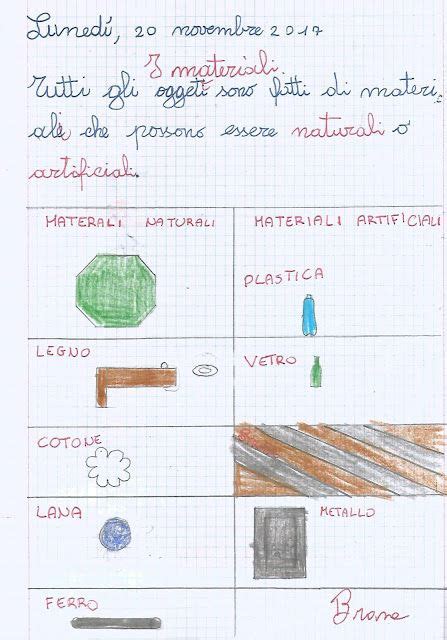 Lunedí, 20 novembre 2017
I materiali
Tutti gli oggeti sono fatti di materi-
ali che possono essere naturali o
artificiali.
MATERALI NATURALI
MATERIALI ARTIFICIALI
PLASTICA
LEGNO
VETRO
COTONE
LANA
METALLO
FERRO